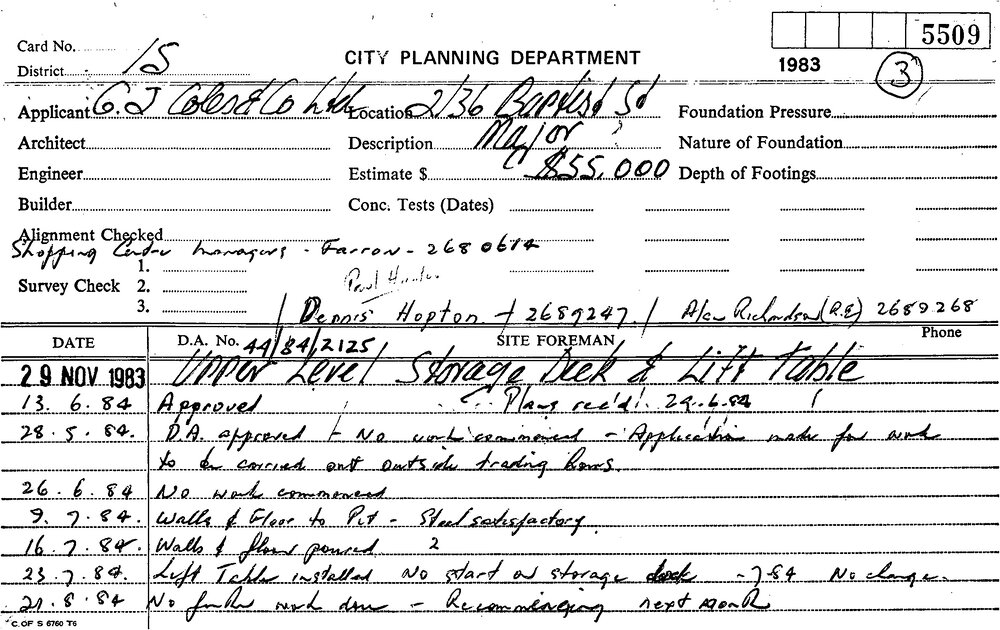 5509
Card No. 15
CITY PLANNING DEPARTMENT
1983
3
District
Applicant G.J Coles & Co Ltd Location 2/36 Baptist St Foundation Pressure
Architect Description Major Nature of Foundation
Engineer Estimate $ $55,000 Depth of Footings
Builder Conc. Tests (Dates)
Alignment Checked
Shopping Centre managers - Farron - 268 0614
1.
Survey Check 2. Paul
3.
/ Dennis Hopton - 2689247 / Alan Richardson (R.E) 2689268
DATE D.A. No. 44/84/2125 SITE FOREMAN Phone
29 NOV 1983 Upper Level Storage Deck & Lift Table
13.6.84 Approved Plans rec'd. 29.6.84
28.5.84. D.A. approved - No work commenced - Application made for work
to be carried out outside trading hours.
26.6.84 No work commenced
9.7.84. Walls & Floor to Pit - Steel satisfactory.
16.7.84. Walls & floor poured 2
23.7.84. Lift Table installed No start on storage deck - 7 84 No change.
21.8.84 No further work done - Recommencing next month
C. OF S 6760 T6